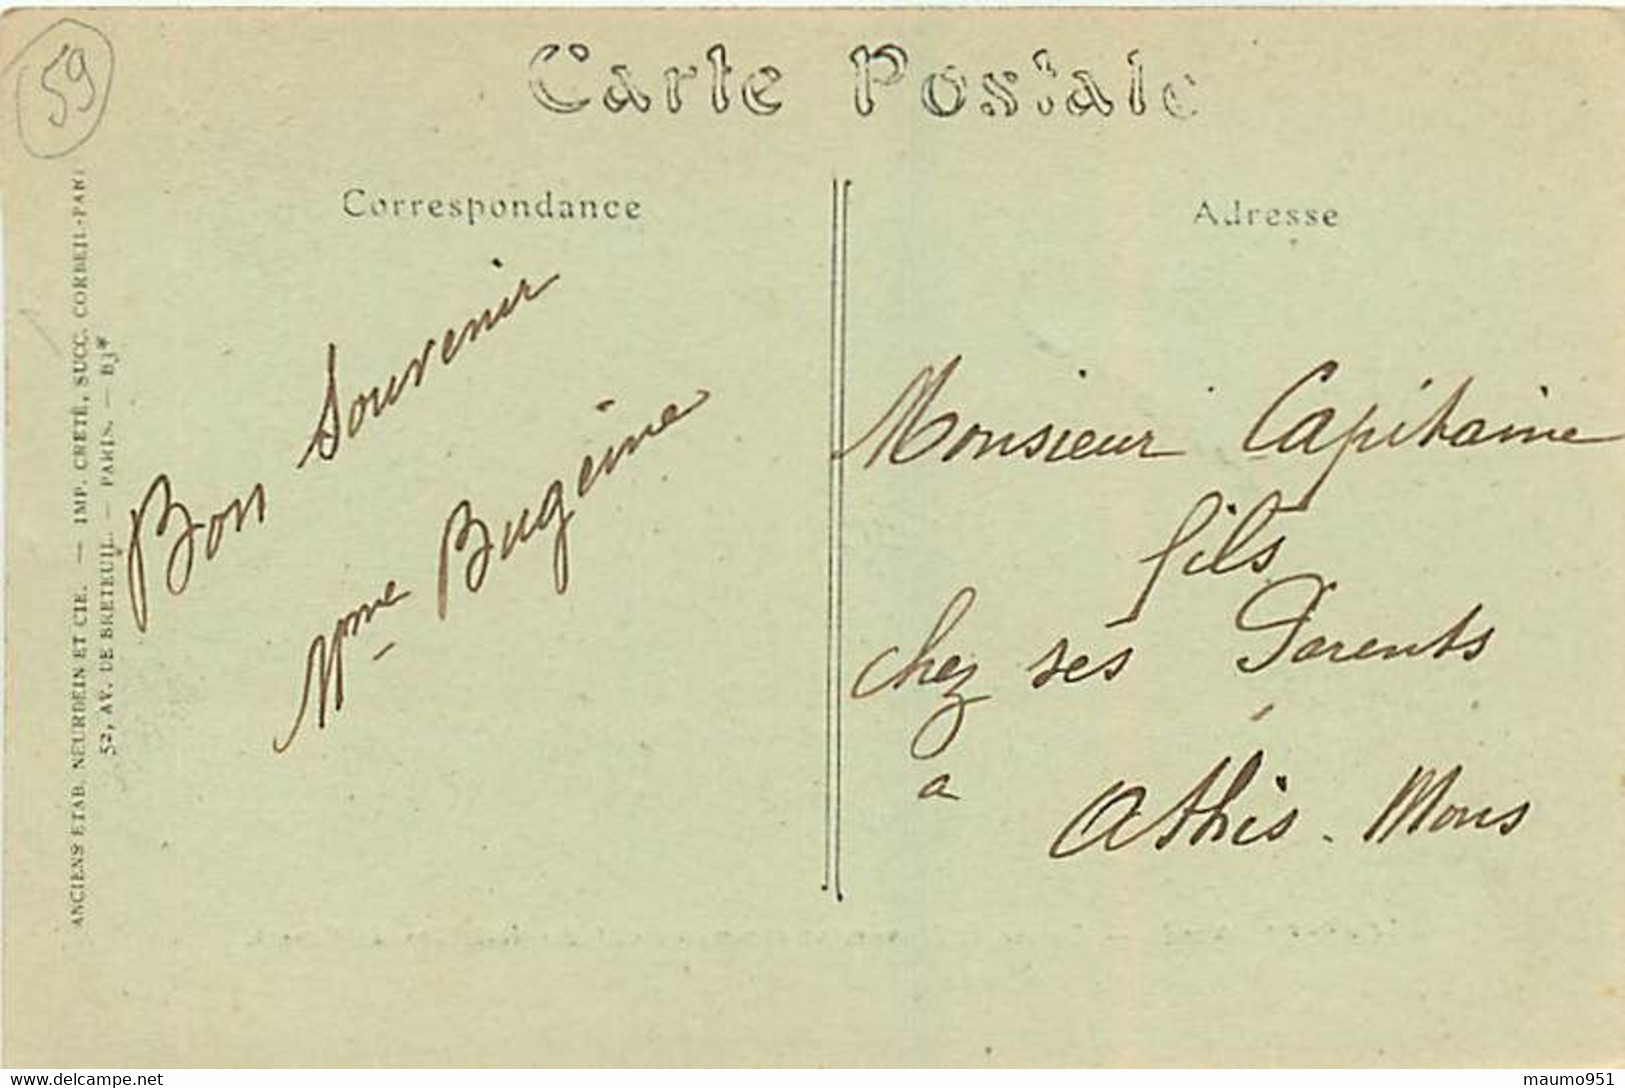 59
Carte Postale
Correspondance
Adresse
Bon Souvenir
Mme Bugeine
Monsieur Capitaine
fils
chez ses Parents
a
Athis. Mons
ANCIENS ETAB. NEURDEIN ET CIE. — IMP. CRÉTÉ, SUCC. CORBEIL-PARI
52, AV. DE BRETEUIL. — PARIS. —
www.delcampe.net
maumo951